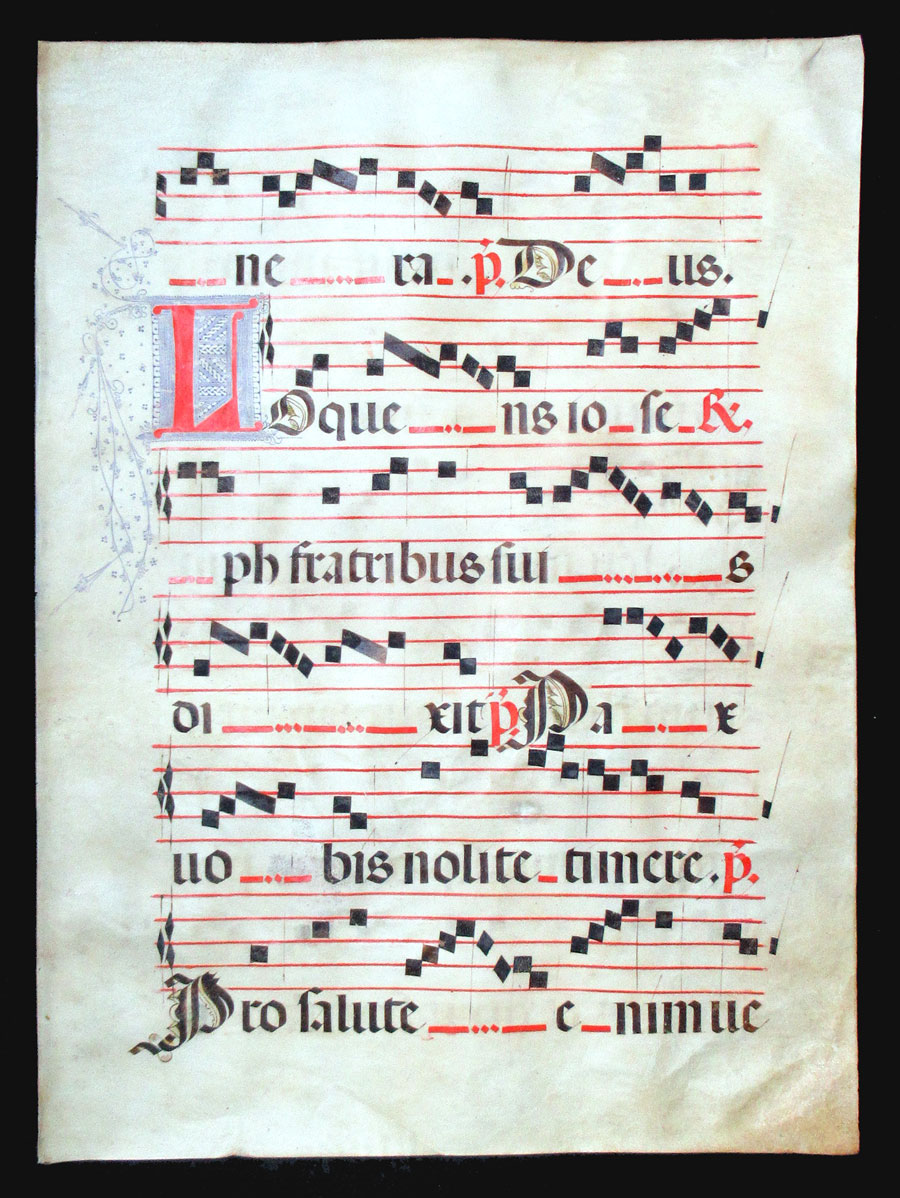 ne ra. p. De us.
LOquens iose R.
ph fratribus suis
dixit p. Pax
uobis nolite timere. p.
Pro salute enim ue